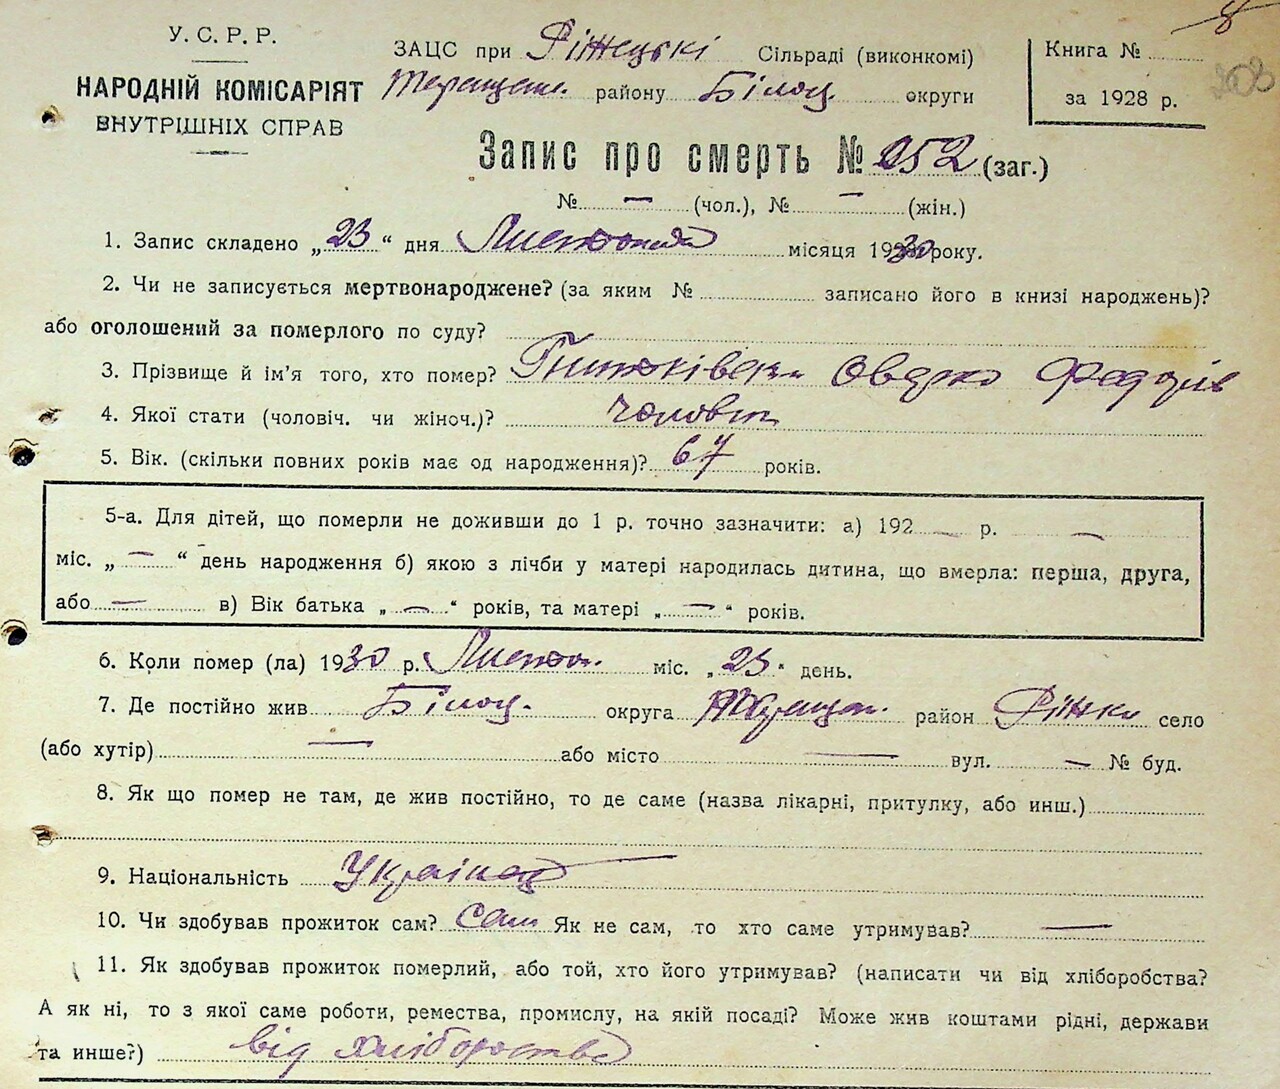 У. С. Р. Р.
НАРОДНІЙ КОМІСАРІЯТ
ВНУТРІШНІХ СПРАВ
ЗАЦС при Ріжецькі Сільраді (виконкомі)
району Білоц. округи
Книга №
за 1928 р.
203
Запис про смерть № 252 (заг.)
№ — (чол.), № — (жін.)
1. Запис складено „23“ дня Листопада місяця 1930 року.
2. Чи не записується мертвонароджене? (за яким № записано його в книзі народжень)?
або оголошений за померлого по суду?
3. Прізвище й ім'я того, хто помер?
4. Якої стати (чоловіч. чи жіноч.)? чоловіч
5. Вік. (скільки повних років має од народження)? 67 років.
5-а. Для дітей, що померли не доживши до 1 р. точно зазначити: а) 192 — р. —
міс. „ — “ день народження б) якою з лічби у матері народилась дитина, що вмерла: перша, друга,
або — в) Вік батька „ — “ років, та матері „ — “ років.
6. Коли помер (ла) 1930 р. Листоп. міс. „23“ день.
7. Де постійно жив Білоц. округа район Ріжки село
(або хутір) — або місто — вул. — № буд.
8. Як що помер не там, де жив постійно, то де саме (назва лікарні, притулку, або инш.)
9. Національність Українец
10. Чи здобував прожиток сам? Сам Як не сам, то хто саме утримував? —
11. Як здобував прожиток померлий, або той, хто його утримував? (написати чи від хліборобства?
А як ні, то з якої саме роботи, ремества, промислу, на якій посаді? Може жив коштами рідні, держави
та инше?) від хліборобства